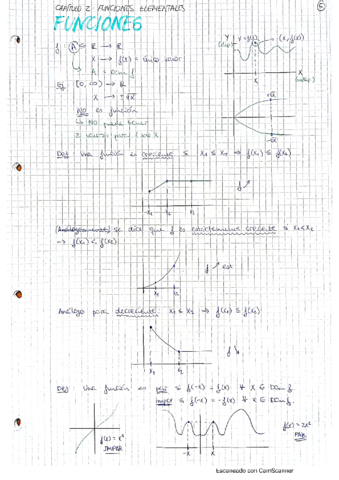 CAPÍTULO 2: FUNCIONES ELEMENTALES
5
FUNCIONES
f: A ⊆ ℝ → ℝ
x → f(x) = único valor
A = Dom f
Ej [0, ∞) → ℝ
x → ±√x
NO es función
NO puede tener
2 valores para 1 solo x
Y
y = f(x)
(x, f(x))
x
X
+√x
-√x
Def: Una función es creciente si x₁ ≤ x₂ ⇒ f(x₁) ≤ f(x₂)
x₁
x₂
f ↗
(Análogamente) se dice que f es estrictamente creciente si x₁ < x₂
→ f(x₁) < f(x₂)
x₁
x₂
f ↗ est
Análogo para decreciente: x₁ ≤ x₂ ⇒ f(x₁) ≥ f(x₂)
x₁
x₂
f ↘
Def: Una función es par si f(-x) = f(x) ∀ x ∈ Dom f.
impar si f(-x) = -f(x) ∀ x ∈ Dom f.
f(x) = x³
IMPAR
-x
x
PAR
Escaneado con CamScanner